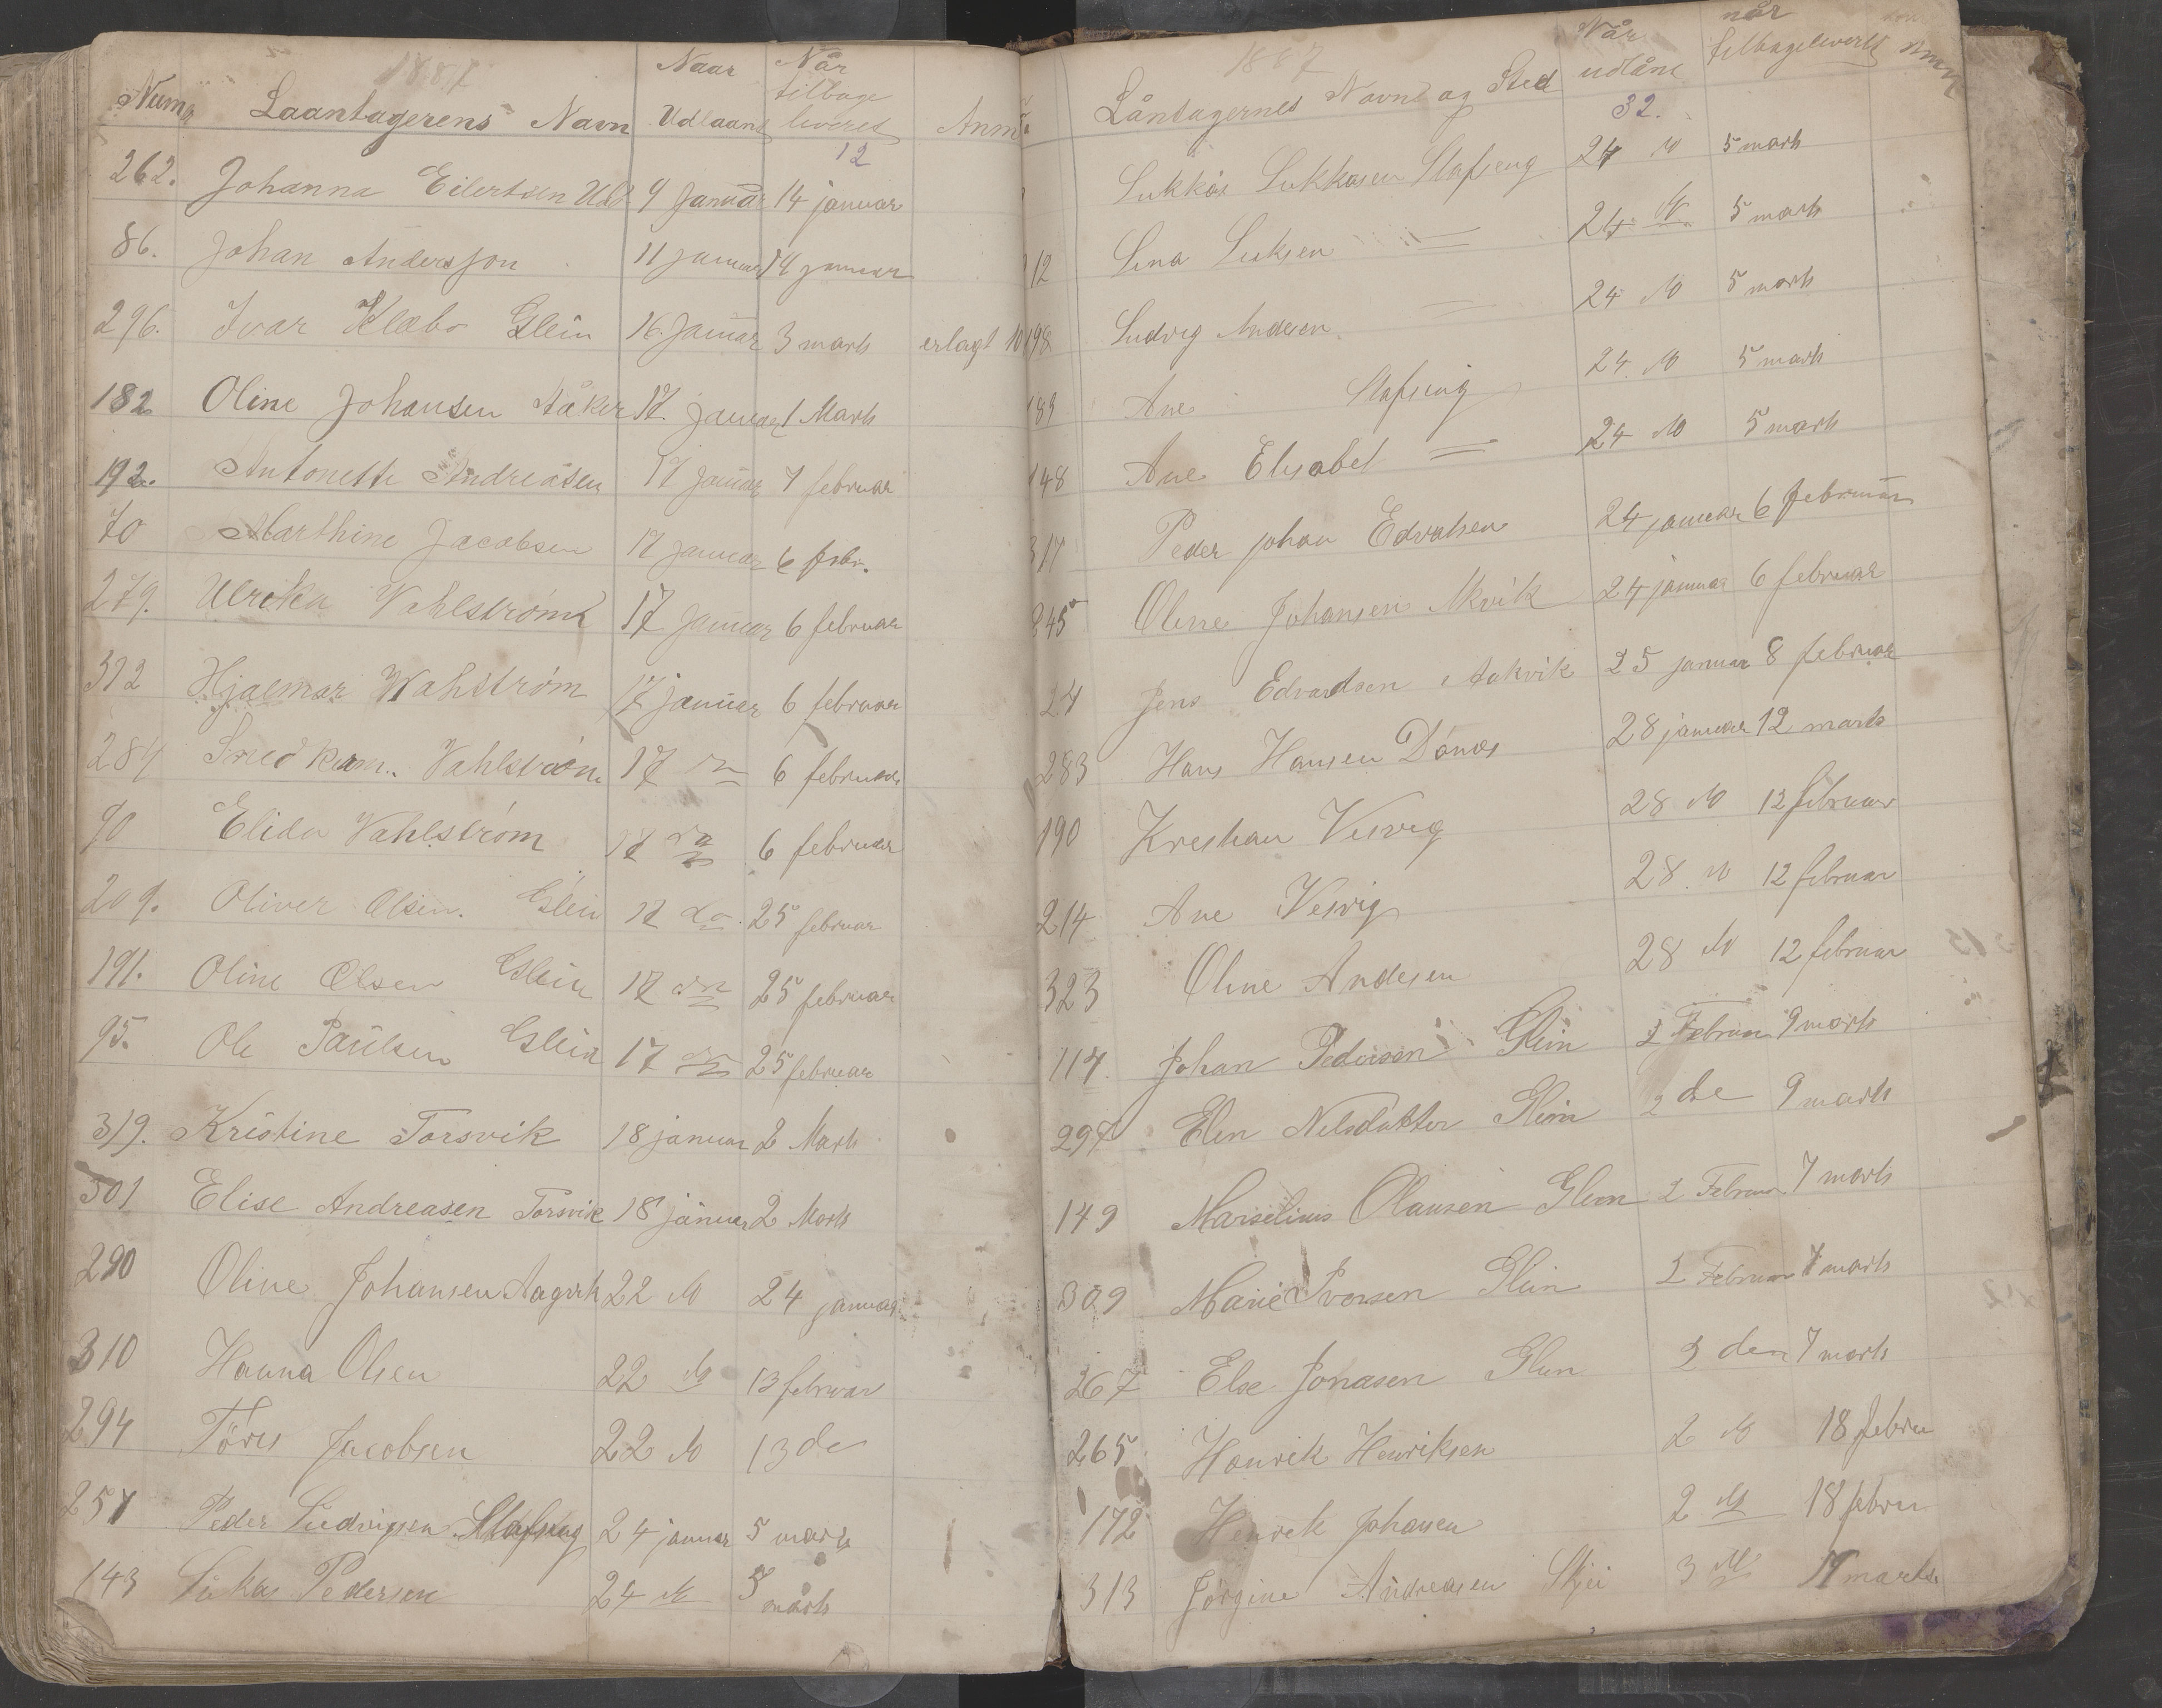 1887
Numr Laantagerens Navn Naar Udlaant Når tilbage leveret Anm
12
262. Johanna Eilertsen 9 Januar 14 januar
86. Johan Andersson 11 januar 14 januar
296. Ivar Klæbo Glein 16. Januar 3 marts erlagt 10
182 Oline Johansen Åker 17. januar 1 Marts
192. Antonette Andreasen 17 januar 7 februar
70 Marthine Jacobsen 17 januar 6 febr.
279. Ulrika Vahlstrøm 17 januar 6 februar
312 Hjalmar Wahstrøm 17 januar 6 februar
284 Vahlstrøm 17 do 6 februar
90 Elida Vahlstrøm 17 do 6 februar
209. Oliver Olsen. Glein 17 do. 25 februar
191. Oline Olsen Glein 17 do 25 februar
95. Ole Paulsen Glein 17 do 25 februar
319. Kristine Torsvik 18 januar 2 Marts
301 Elise Andreasen Torsvik 18 januar 2 Marts
290 Oline Johansen 22 do 24 januar
310 Hanna Olsen 22 do 13 februar
294 Töres Jacobsen 22 do 13 de
257 Peder Ludvigsen Slafseng 24 januar 5 marts
143 Lukas Pedersen 24 do 5 marts
1887
Låntagernes Navne og Sted Når udlånt når tilbageleveret Anm
32.
Lukkas Lukkasen Slafseng 24 do 5 marts
12 Lina Luksen = 24 do 5 marts
198 Ludvig Andesen = 24 do 5 marts
189 Ane Slafseng 24 do 5 marts
148 Ane Elisabet = 24 do 5 marts
317 Peder Johan Edvatsen 24 januar 6 februar
345 Oline Johansen Akvik 24 januar 6 februar
24 Jens Edvardsen Aakvik 25 januar 8 februar
283 Hans Hansen Dønæs 28 januar 12 marts
190 Kreshan Vesvig 28 do 12 februar
214 Ane Vesvig 28 do 12 februar
323 Oline Andesen 28 do 12 februar
114. Johan Pedersen Glein 2 Februar 9 marts
297 Elen Nelsdatter Glein 2 de 9 marts
149 Marselius Olausen Glein 2 Februar 7 marts
309 Marie Iversen Glein 2 Februar 7 marts
267 Else Jonasen Glein 2 den 7 marts
265 Henrik Henriksen 2 do 18 febru
172 Henrek Johansen 2 do 18 febru
313 Jørgine Andreasen 3 do 11 marts